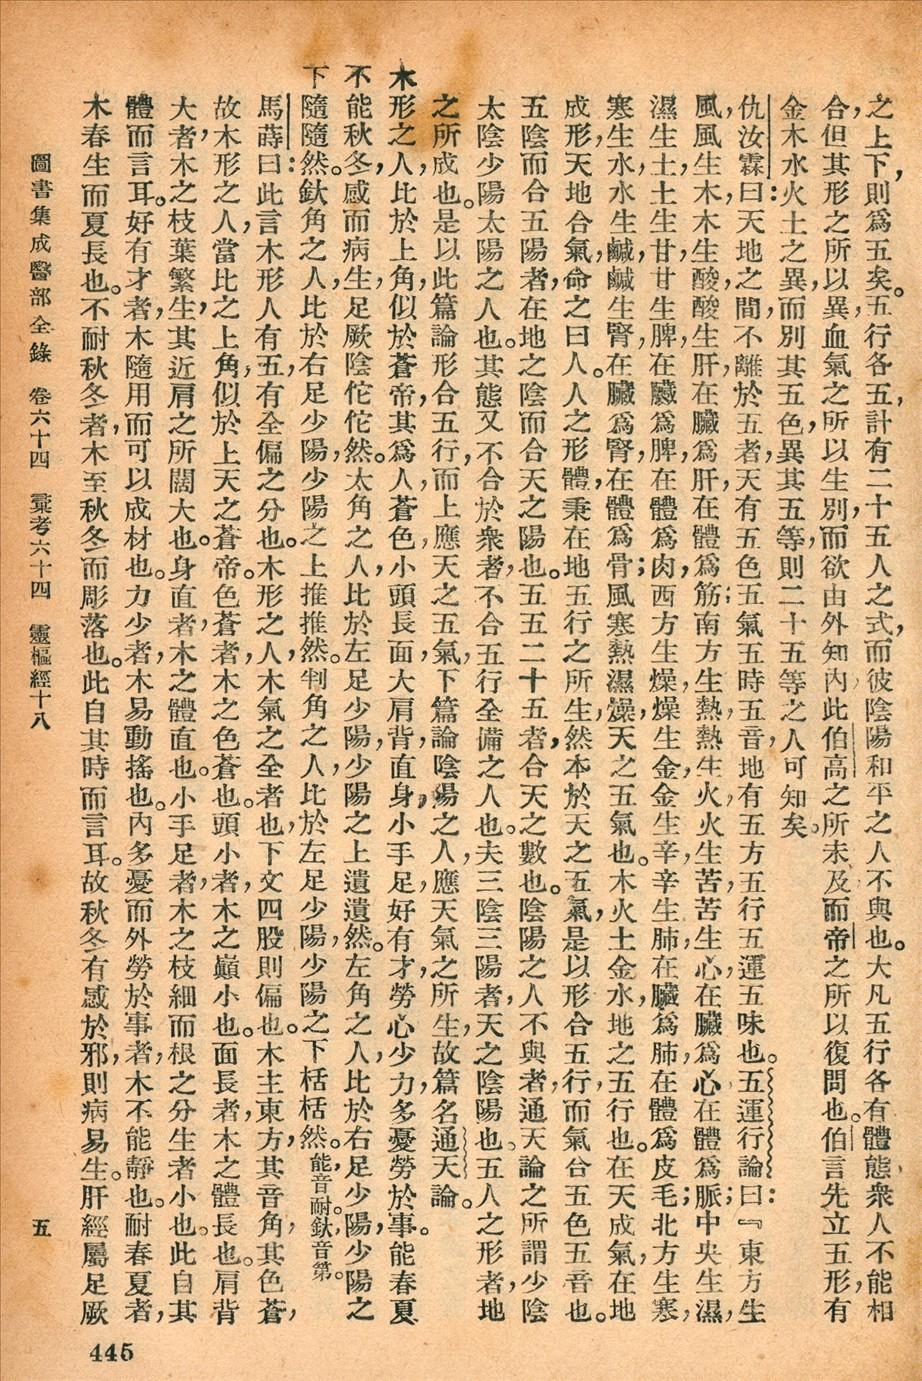 之上下，則爲五矣。五行各五，計有二十五人之式，而彼陰陽和平之人不與也。大凡五行各有體態，衆人不能相
合，但其形之所以異，血氣之所以生別，而欲由外知內，此伯高之所未及，而帝之所以復問也。伯言先立五形，有
金木水火土之異，而別其五色，異其五等，則二十五等之人可知矣。
仇汝霖曰：天地之間，不離於五者，天有五色五氣五時五音，地有五方五行五運五味也。五運行論曰：『東方生
風，風生木，木生酸，酸生肝，在臟爲肝，在體爲筋；南方生熱，熱生火，火生苦，苦生心，在臟爲心，在體爲脈；中央生濕，
濕生土，土生甘，甘生脾，在臟爲脾，在體爲肉；西方生燥，燥生金，金生辛，辛生肺，在臟爲肺，在體爲皮毛；北方生寒，
寒生水，水生鹹，鹹生腎，在臟爲腎，在體爲骨；風寒熱濕燥，天之五氣也。木火土金水，地之五行也。在天成氣，在地
成形，天地合氣，命之曰人。人之形體，秉在地五行之所生，然本於天之五氣，是以形合五行，而氣合五色五音也。
五陰而合五陽者，在地之陰而合天之陽也。五五二十五者，合天之數也。陰陽之人不與者，通天論之所謂少陰
太陰少陽太陽之人也。其態又不合於衆者，不合五行全備之人也。夫三陰三陽者，天之陰陽也。五人之形者，地
之所成也。是以此篇論形合五行，而上應天之五氣，下篇論陰陽之人，應天氣之所生，故篇名通天論。
木形之人，比於上角，似於蒼帝，其爲人，蒼色，小頭長面，大肩背，直身，小手足，好有才，勞心少力，多憂勞於事。能春夏
不能秋冬，感而病生，足厥陰佗佗然。太角之人，比於左足少陽，少陽之上遺遺然。左角之人，比於右足少陽，少陽之
下隨隨然。釱角之人，比於右足少陽，少陽之上推推然。判角之人，比於左足少陽，少陽之下栝栝然。能音耐，釱音第。
馬蒔曰：此言木形人有五，有全偏之分也。木形之人，木氣之全者也，下文四股則偏也。木主東方，其音角，其色蒼，
故木形之人，當比之上角，似於上天之蒼帝。色蒼者，木之色蒼也。頭小者，木之巔小也。面長者，木之體長也。肩背
大者，木之枝葉繁生，其近肩之所闊大也。身直者，木之體直也。小手足者，木之枝細而根之分生者小也。此自其
體而言耳。好有才者，木隨用而可以成材也。力少者，木易動搖也。內多憂而外勞於事者，木不能靜也。耐春夏者，
木春生而夏長也。不耐秋冬者，木至秋冬而彫落也。此自其時而言耳。故秋冬有感於邪，則病易生。肝經屬足厥
圖書集成醫部全錄　卷六十四　彙考六十四　靈樞經十八　五
445